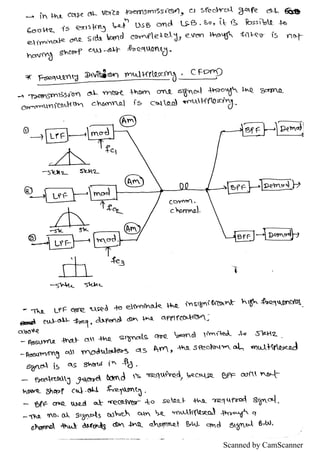 → in the case of voice transmission, a spectral gape of
600Hz is exiting bet USB and LSB. So, it is possible to
eliminate one side band completely, even though filter is not
having sharp cut-off frequency.
* Frequency Division multiplexing. (FDM)
→ Transmission of more than one signal through the same
communication channel is called multiplexing.
① LPF mod Am BPF Demod
fc1
-5kHz 5kHz
② LPF mod Am BPF Demod
fc2
-5k 5k
comm.
channel
③ LPF mod Am BPF Demod
fc3
-5kHz 5kHz
- The LPF are used to eliminate the insignificant high frequencies
cut-off freq, depend on the application.
above
- Assume that all the signals are band limited to 5kHz
- Assuming all modulators as Am, the spectrum of multiplexed
signal is as shown in fig.
- Practically guard band is required, because BPF will not
have sharp cut-off frequency.
- BPF are used at receiver to select the required signal.
- The no. of signals which can be multiplexed through a
channel that depends on the channel BW and signal BW.
Scanned by CamScanner